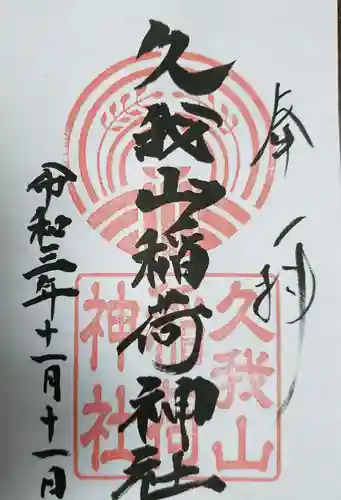 奉拝
久我山稲荷神社
久我山
稲荷
神社
令和三年十一月十一日